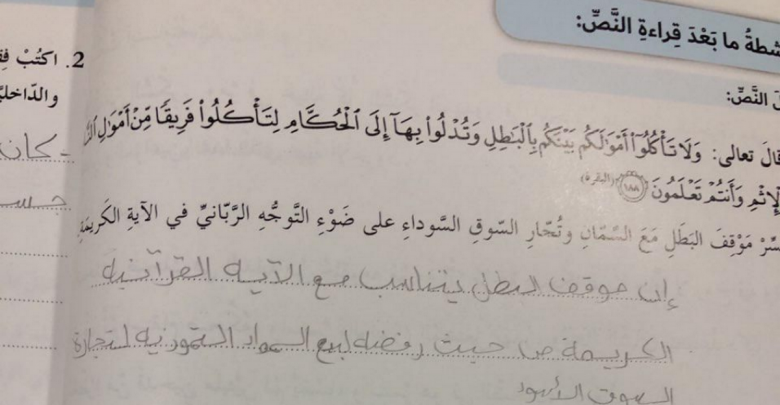 شطةُ ما بَعْدَ قِراءةِ النَّصِّ:
النَّصِّ:
قالَ تعالى: وَلَا تَأْكُلُوٓا۟ أَمْوَٰلَكُم بَيْنَكُم بِٱلْبَٰطِلِ وَتُدْلُوا۟ بِهَآ إِلَى ٱلْحُكَّامِ لِتَأْكُلُوا۟ فَرِيقًا مِّنْ أَمْوَٰلِ
لْإِثْمِ وَأَنتُمْ تَعْلَمُونَ ١٨٨ (البقرة)
سِّرْ مَوْقِفَ البَطَلِ مَعَ السَّمّانِ وتُجّارِ السّوقِ السَّوداءِ على ضَوْءِ التَّوجُّهِ الرَّبّانيِّ في الآيةِ الكَريمَةِ
إن موقف البطل يتناسب مع الآية القرآنية
الكريمة من حيث رفضه لبيع المواد التموينية لتجارة
السوق الأسود
2. اكتُبْ
والدّاخليّ
- كان